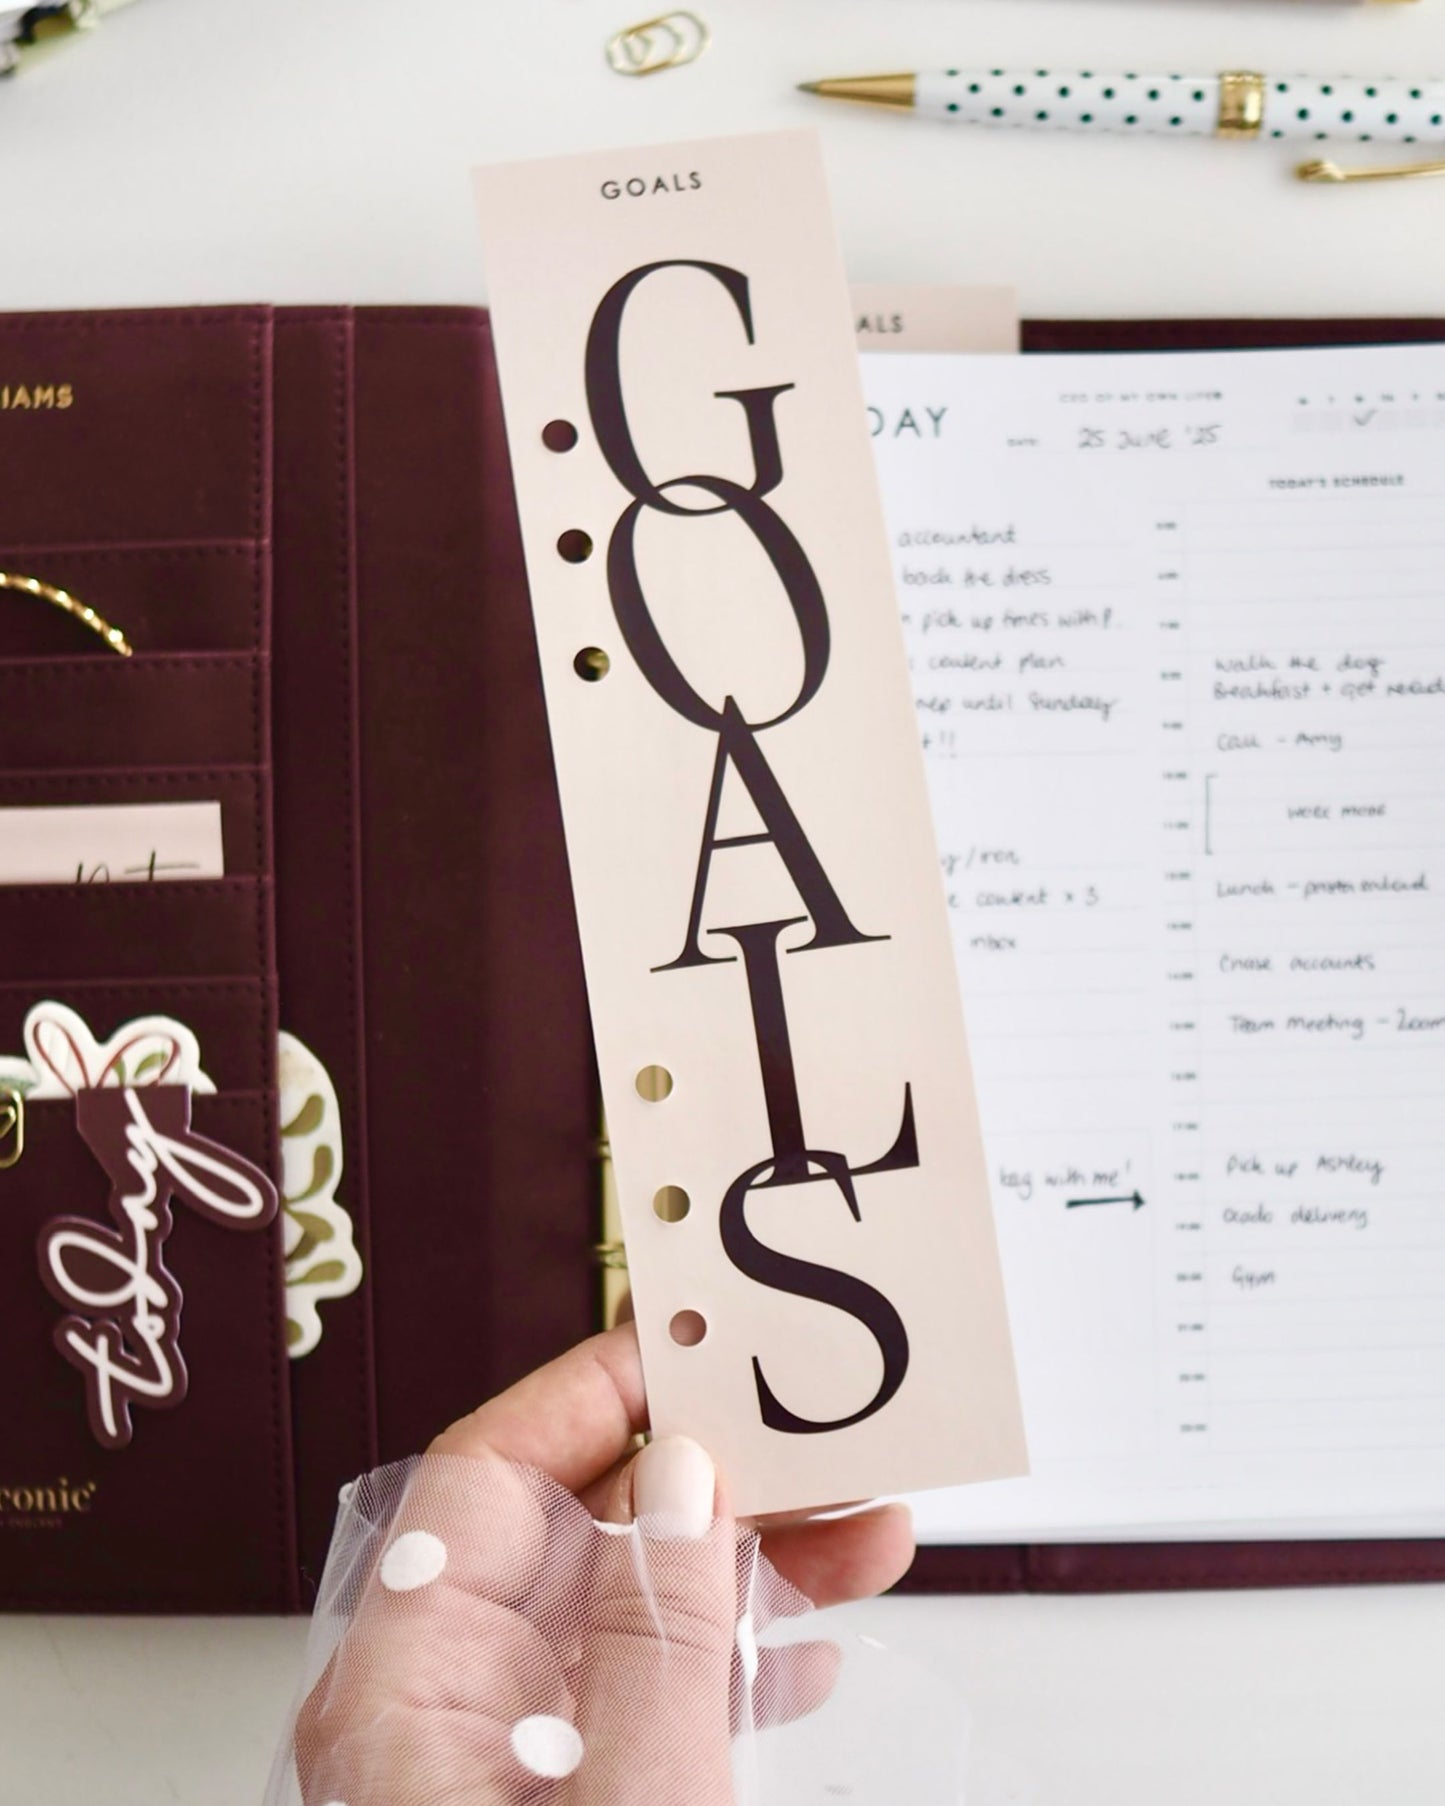 GOALS
GOALS
IAMS
ALS
DAY
CEO OF MY OWN LIFE
DATE:
25 JUNE '25
TODAY'S SCHEDULE
accountant
back the dress
pick up times with P.
content plan
until Sunday
!!
/iron
content x 3
inbox
bag with me!
walk the dog
Breakfast + get
Call - Amy
work mode
Lunch - pasta salad
Chase accounts
Team Meeting - Zoom
Pick up Ashley
Ocado delivery
Gym
today
conic